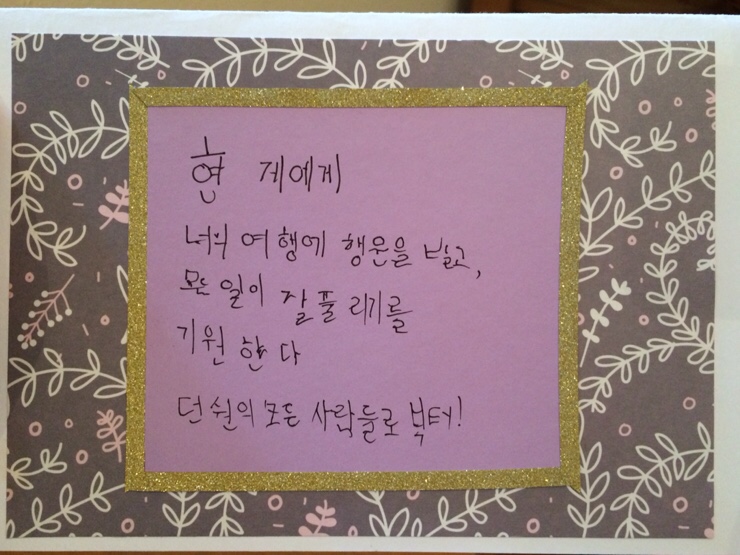 현 제에게
너의 여행에 행운을 빌고,
모든 일이 잘 풀 리기를
기원 한 다
던 쉰의 모든 사람들로 부터!